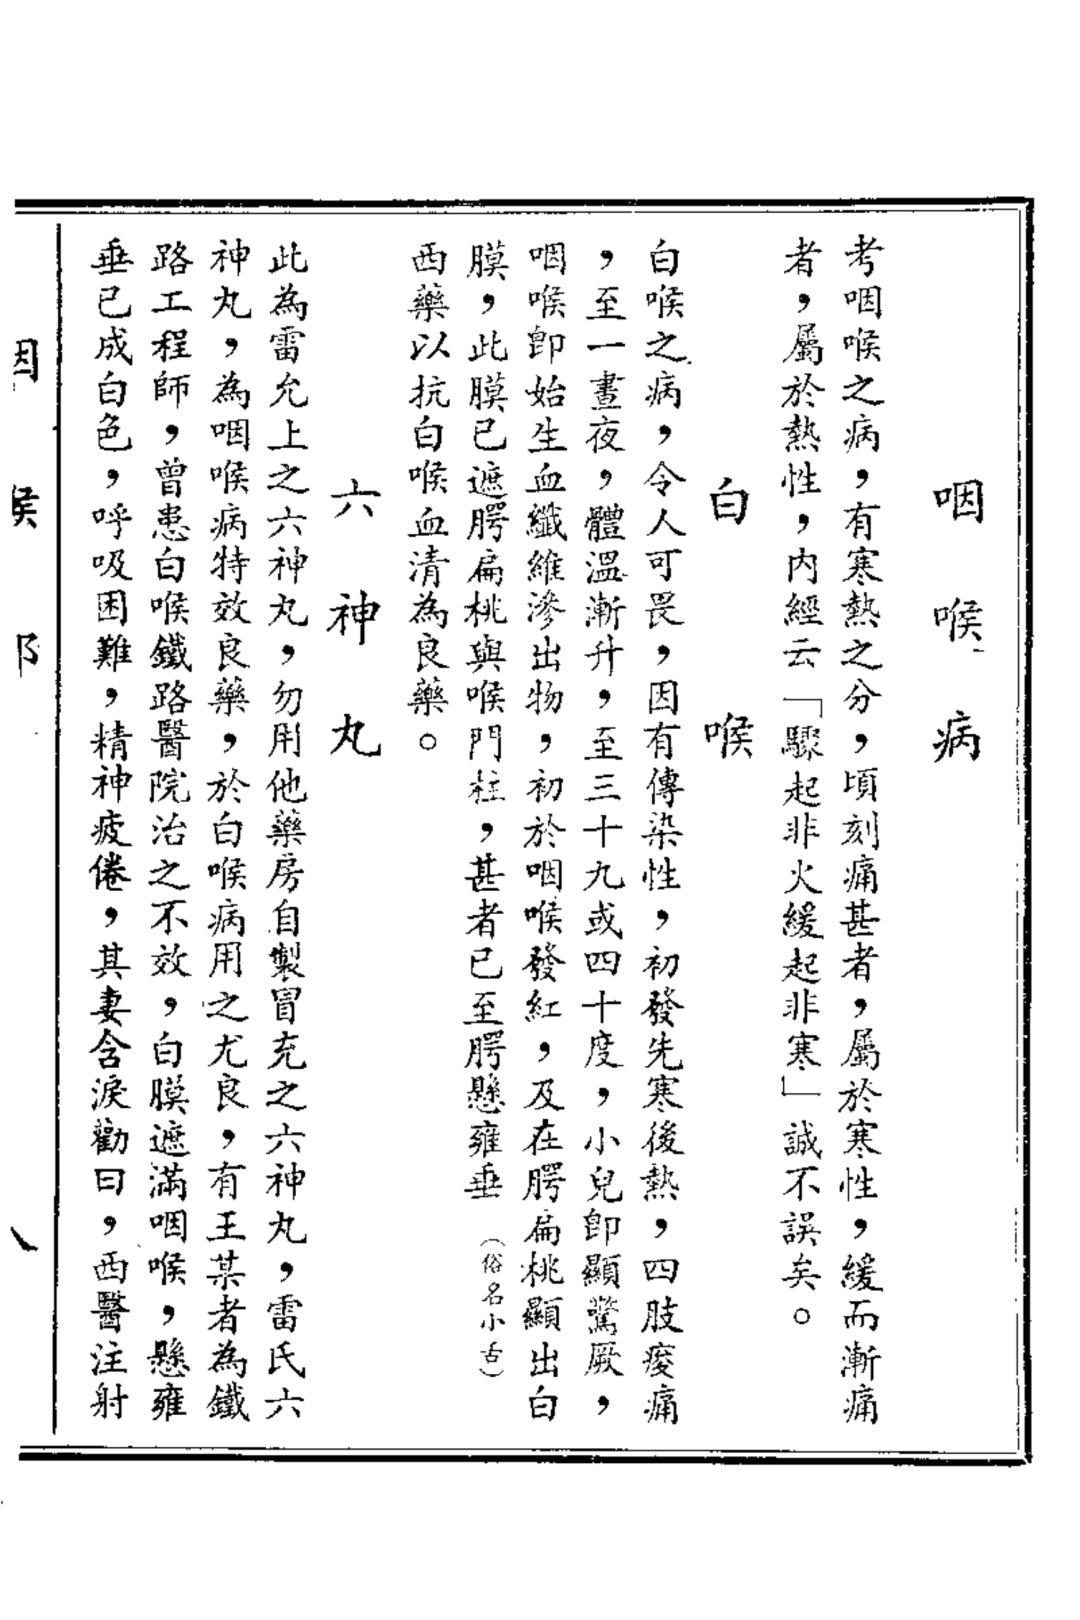 咽喉病
考咽喉之病，有寒熱之分，頃刻痛甚者，屬於寒性，緩而漸痛
者，屬於熱性，内經云「驟起非火緩起非寒」誠不誤矣。
白喉
白喉之病，令人可畏，因有傳染性，初發先寒後熱，四肢痠痛
，至一晝夜，體溫漸升，至三十九或四十度，小兒卽顯驚厥，
咽喉卽始生血纖維滲出物，初於咽喉發紅，及在腭扁桃顯出白
膜，此膜已遮腭扁桃與喉門柱，甚者已至腭懸雍垂（俗名小舌）
西藥以抗白喉血清為良藥。
六神丸
此為雷允上之六神丸，勿用他藥房自製冒充之六神丸，雷氏六
神丸，為咽喉病特效良藥，於白喉病用之尤良，有王某者為鐵
路工程師，曾患白喉鐵路醫院治之不效，白膜遮滿咽喉，懸雍
垂已成白色，呼吸困難，精神疲倦，其妻含淚勸曰，西醫注射